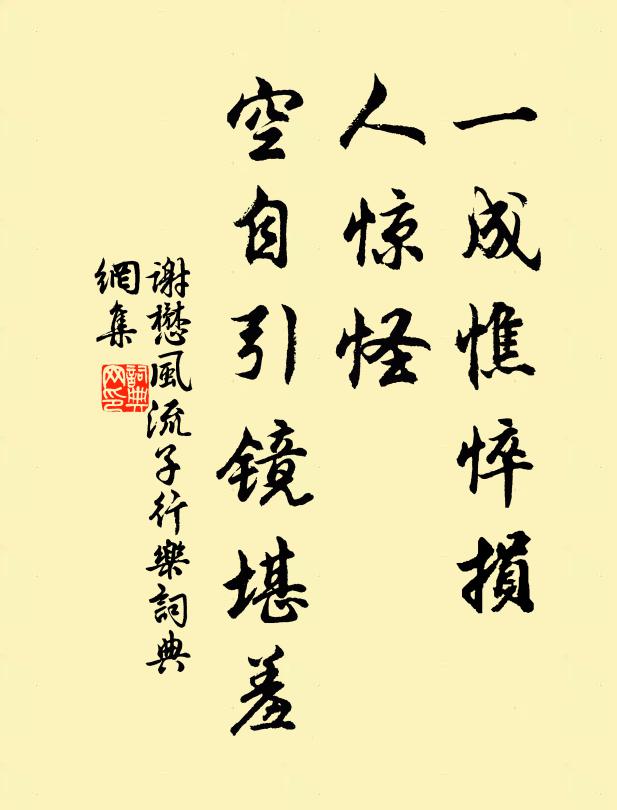 一成憔悴損
人惊怪
空自引镜堪羞
谢懋風流子行樂詞典
網集
詞典
网印